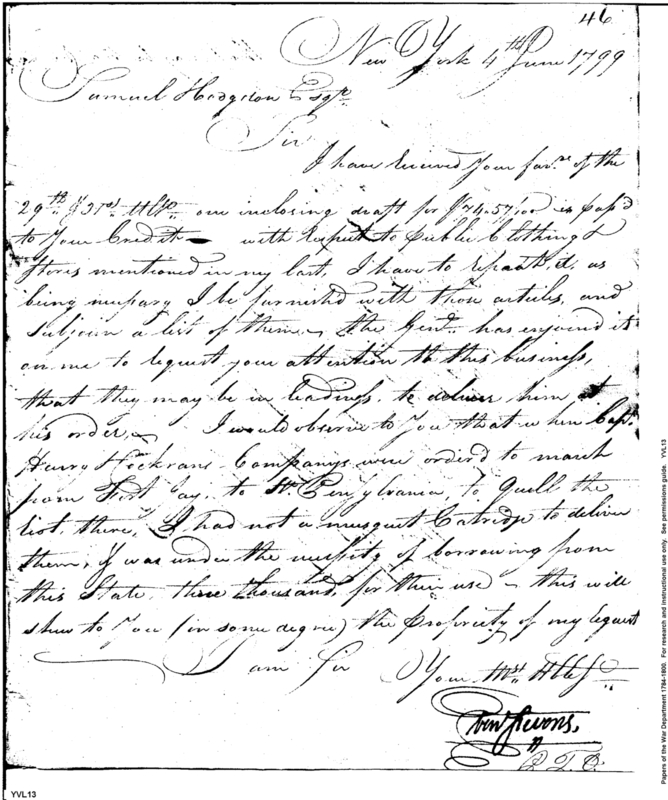 46
New York 4th June 1799
Samuel Hodgsdon Esqr.
Sir
I have received Your favrs. of the
29th & 31st Ulto. one inclosing draft for $74.57/100 is Pass'd
to Your Credit — with respect to Public Clothing &
Stores mentioned in my last, I have to repeat it, as
being nessary I be furnished with those articles, and
Subjoin a list of them, the Genl. has enjoind it
on me to request your attention to this business,
that they may be in readings, to deliver them at
his order, I would observe to You that when Capt.
Henry & Companys were orderd to march
from Fort Jay, to Pensylvania, to quell the
riot, there, I had not a musquet Catridge to deliver
them, & was under the nessity of borrowing from
this State, three thousand, for their use – this will
shew to You (in some degree) the Propriety of my request
I am Sir Your Mst. Hble St
YVL13
Papers of the War Department 1784-1800. For research and instructional use only. See permissions guide. YVL13